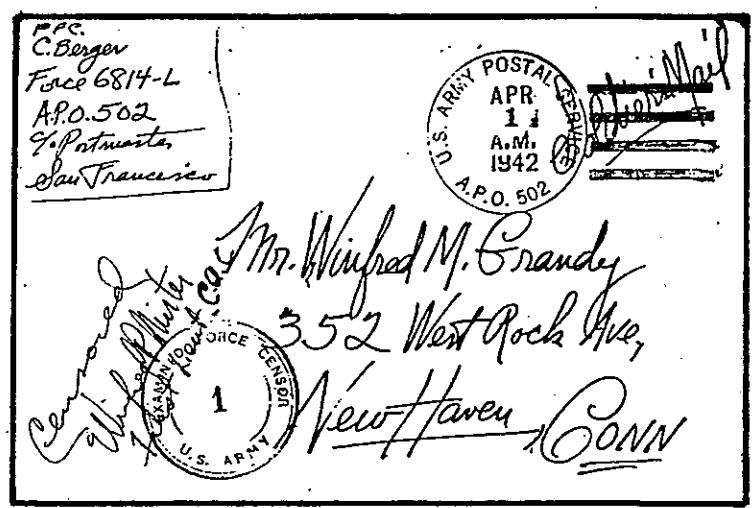 P.F.C.
C. Berger
Force 6814-L
A.P.O. 502
c/o. Postmaster
San Francisco
U.S. ARMY POSTAL SERVICE
APR
1
A.M.
1942
A.P.O. 502
Soldier's Mail
Mr. Winfred M. Grandy
352 West Rock Ave,
New Haven, CONN
Censored
First Lieut. C.A.C.
FORCE CENSOR
1
U.S. ARMY